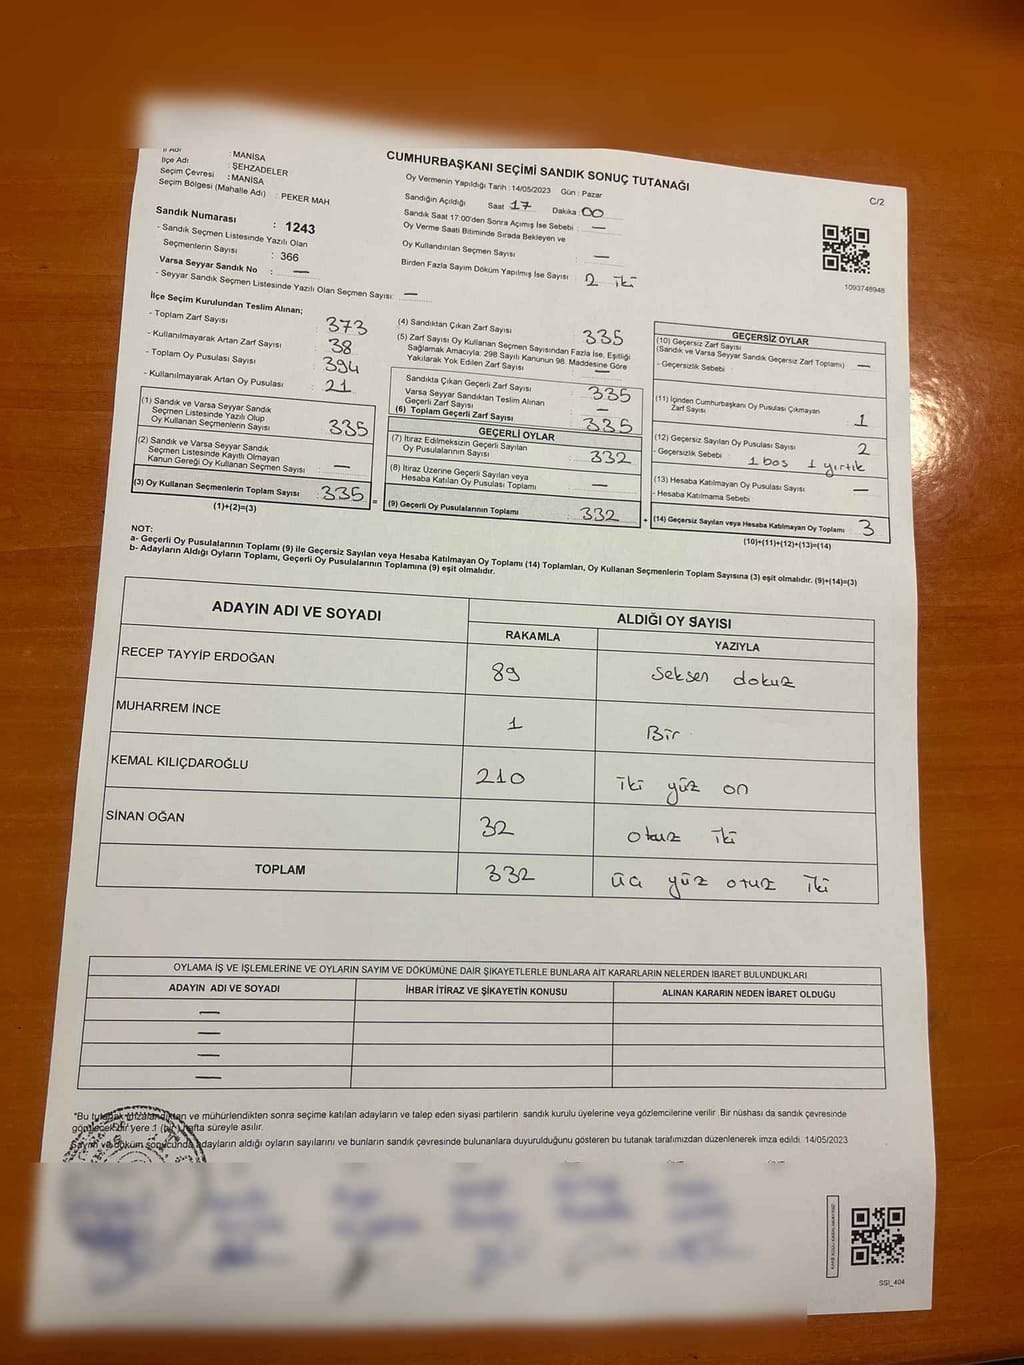 İl Adı : MANİSA
İlçe Adı : ŞEHZADELER
Seçim Çevresi : MANİSA
Seçim Bölgesi (Mahalle Adı) : PEKER MAH
CUMHURBAŞKANI SEÇİMİ SANDIK SONUÇ TUTANAĞI
C/2
Oy Vermenin Yapıldığı Tarih : 14/05/2023 Gün : Pazar
Sandığın Açıldığı Saat 17 Dakika 00
Sandık Saat 17:00'den Sonra Açımış İse Sebebi : —
Oy Verme Saati Bitiminde Sırada Bekleyen ve
Oy Kullandırılan Seçmen Sayısı —
Birden Fazla Sayım Döküm Yapılmış İse Sayısı : 2 iki
1093748948
Sandık Numarası : 1243
- Sandık Seçmen Listesinde Yazılı Olan
Seçmenlerin Sayısı : 366
Varsa Seyyar Sandık No : —
- Seyyar Sandık Seçmen Listesinde Yazılı Olan Seçmen Sayısı: —
İlçe Seçim Kurulundan Teslim Alınan;
- Toplam Zarf Sayısı : 373
- Kullanılmayarak Artan Zarf Sayısı : 38
- Toplam Oy Pusulası Sayısı : 394
- Kullanılmayarak Artan Oy Pusulası : 21
(1) Sandık ve Varsa Seyyar Sandık
Seçmen Listesinde Yazılı Olup
Oy Kullanan Seçmenlerin Sayısı : 335
(2) Sandık ve Varsa Seyyar Sandık
Seçmen Listesinde Kayıtlı Olmayan
Kanun Gereği Oy Kullanan Seçmen Sayısı : —
(3) Oy Kullanan Seçmenlerin Toplam Sayısı : 335
(1)+(2)=(3)
=
(4) Sandıktan Çıkan Zarf Sayısı : 335
(5) Zarf Sayısı Oy Kullanan Seçmen Sayısından Fazla İse, Eşitliği
Sağlamak Amacıyla; 298 Sayılı Kanunun 98. Maddesine Göre
Yakılarak Yok Edilen Zarf Sayısı : —
Sandıkta Çıkan Geçerli Zarf Sayısı : 335
Varsa Seyyar Sandıktan Teslim Alınan
Geçerli Zarf Sayısı : —
(6) Toplam Geçerli Zarf Sayısı : 335
GEÇERLİ OYLAR
(7) İtiraz Edilmeksizin Geçerli Sayılan
Oy Pusulalarının Sayısı : 332
(8) İtiraz Üzerine Geçerli Sayılan veya
Hesaba Katılan Oy Pusulası Toplamı : —
(9) Geçerli Oy Pusulalarının Toplamı : 332
+
GEÇERSİZ OYLAR
(10) Geçersiz Zarf Sayısı
(Sandık ve Varsa Seyyar Sandık Geçersiz Zarf Toplamı) —
- Geçersizlik Sebebi :
(11) İçinden Cumhurbaşkanı Oy Pusulası Çıkmayan
Zarf Sayısı : 1
(12) Geçersiz Sayılan Oy Pusulası Sayısı : 2
- Geçersizlik Sebebi : 1 bos 1 yırtık
(13) Hesaba Katılmayan Oy Pusulası Sayısı : —
- Hesaba Katılmama Sebebi
(14) Geçersiz Sayılan veya Hesaba Katılmayan Oy Toplamı 3
(10)+(11)+(12)+(13)=(14)
NOT:
a- Geçerli Oy Pusulalarının Toplamı (9) ile Geçersiz Sayılan veya Hesaba Katılmayan Oy Toplamı (14) Toplamları, Oy Kullanan Seçmenlerin Toplam Sayısına (3) eşit olmalıdır. (9)+(14)=(3)
b- Adayların Aldığı Oyların Toplamı, Geçerli Oy Pusulalarının Toplamına (9) eşit olmalıdır.
ADAYIN ADI VE SOYADI
ALDIĞI OY SAYISI
RAKAMLA YAZIYLA
RECEP TAYYİP ERDOĞAN 89 Seksen dokuz
MUHARREM İNCE 1 Bir
KEMAL KILIÇDAROĞLU 210 iki yüz on
SİNAN OĞAN 32 otuz iki
TOPLAM 332 üç yüz otuz iki
OYLAMA İŞ VE İŞLEMLERİNE VE OYLARIN SAYIM VE DÖKÜMÜNE DAİR ŞİKAYETLERLE BUNLARA AİT KARARLARIN NELERDEN İBARET BULUNDUKLARI
ADAYIN ADI VE SOYADI İHBAR İTİRAZ VE ŞİKAYETİN KONUSU ALINAN KARARIN NEDEN İBARET OLDUĞU
—
—
—
—
*Bu tutanak imzalandıktan ve mühürlendikten sonra seçime katılan adayların ve talep eden siyasi partilerin sandık kurulu üyelerine veya gözlemcilerine verilir. Bir nüshası da sandık çevresinde
görülecek bir yere 1 (bir) hafta süreyle asılır.
Sayım ve döküm sonucunda adayların aldığı oyların sayılarını ve bunların sandık çevresinde bulunanlara duyurulduğunu gösteren bu tutanak tarafımızdan düzenlenerek imza edildi. 14/05/2023
SSI_404